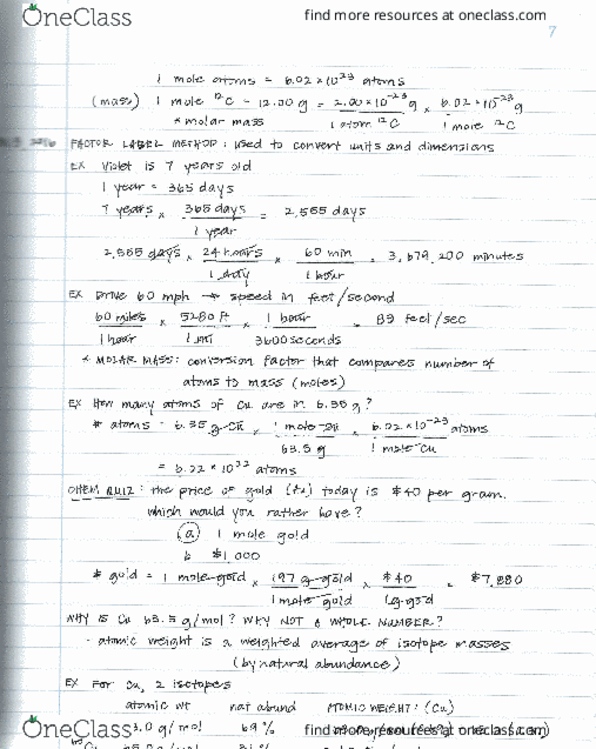 OneClass
find more resources at oneclass.com
7
1 mole atoms = 6.02 × 10²³ atoms
(mass) 1 mole ¹²C = 12.00 g = 2.00 × 10⁻²³ g × 6.02 × 10⁻²³ g
* molar mass 1 atom ¹²C 1 mole ¹²C
FACTOR LABEL METHOD: used to convert units and dimensions
EX Violet is 7 years old
1 year = 365 days
7 years × 365 days = 2,555 days
1 year
2,555 days × 24 hours × 60 min = 3,679,200 minutes
1 day 1 hour
EX Drive 60 mph → speed in feet/second
60 miles × 5280 ft × 1 hour = 89 feet/sec
1 hour 1 mi 3600 seconds
* MOLAR MASS: conversion factor that compares number of
atoms to mass (moles)
EX How many atoms of Cu are in 6.35 g?
# atoms = 6.35 g Cu × 1 mole Cu × 6.02 × 10⁻²³ atoms
63.5 g 1 mole Cu
= 6.22 × 10²² atoms
CHEM QUIZ: the price of gold (Au) today is $40 per gram.
which would you rather have?
(a) 1 mole gold
b $1,000
# gold = 1 mole gold × 197 g gold × $40 = $7,880
1 mole gold 1 g gold
WHY IS Cu 63.5 g/mol? WHY NOT A WHOLE NUMBER?
- atomic weight is a weighted average of isotope masses
(by natural abundance)
EX For Cu, 2 isotopes
atomic wt nat abund ATOMIC WEIGHT: (Cu)
OneClass
3.0 g/mol 69%
find more resources at oneclass.com
Cu